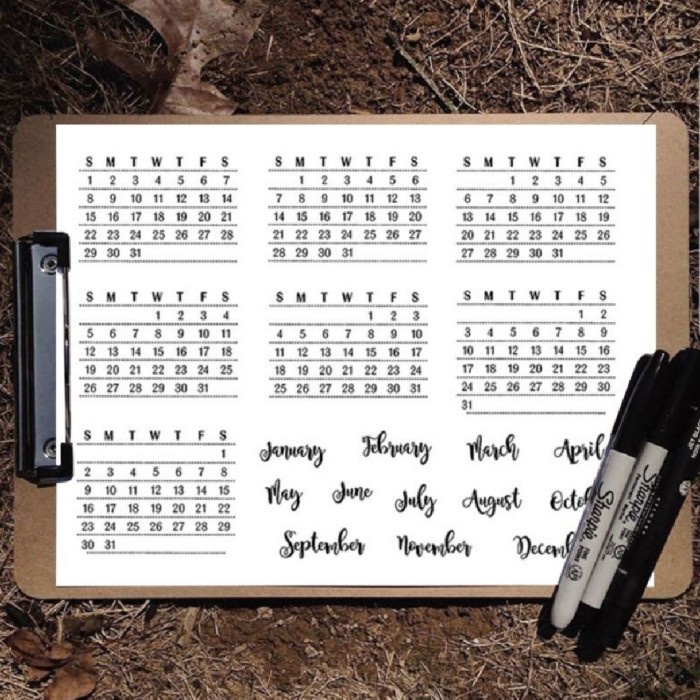 S M T W T F S
1 2 3 4 5 6 7
8 9 10 11 12 13 14
15 16 17 18 19 20 21
22 23 24 25 26 27 28
29 30 31
S M T W T F S
1 2 3 4 5 6
7 8 9 10 11 12 13
14 15 16 17 18 19 20
21 22 23 24 25 26 27
28 29 30 31
S M T W T F S
1 2 3 4 5
6 7 8 9 10 11 12
13 14 15 16 17 18 19
20 21 22 23 24 25 26
27 28 29 30 31
S M T W T F S
1 2 3 4
5 6 7 8 9 10 11
12 13 14 15 16 17 18
19 20 21 22 23 24 25
26 27 28 29 30 31
S M T W T F S
1 2 3
4 5 6 7 8 9 10
11 12 13 14 15 16 17
18 19 20 21 22 23 24
25 26 27 28 29 30 31
S M T W T F S
1 2
3 4 5 6 7 8 9
10 11 12 13 14 15 16
17 18 19 20 21 22 23
24 25 26 27 28 29 30
31
S M T W T F S
1
2 3 4 5 6 7 8
9 10 11 12 13 14 15
16 17 18 19 20 21 22
23 24 25 26 27 28 29
30 31
January February March April
May June July August
September November
Sharpie
Sharpie